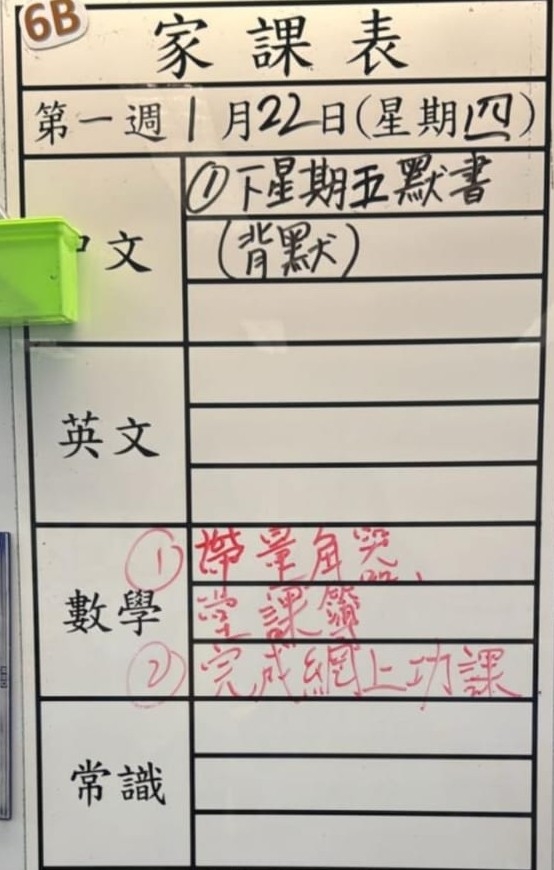 6B
家課表
第一週 1月22日(星期四)
①下星期五默書
中文
(背默)
英文
①帶量角器、
數學
堂課簿
②完成網上功課
常識